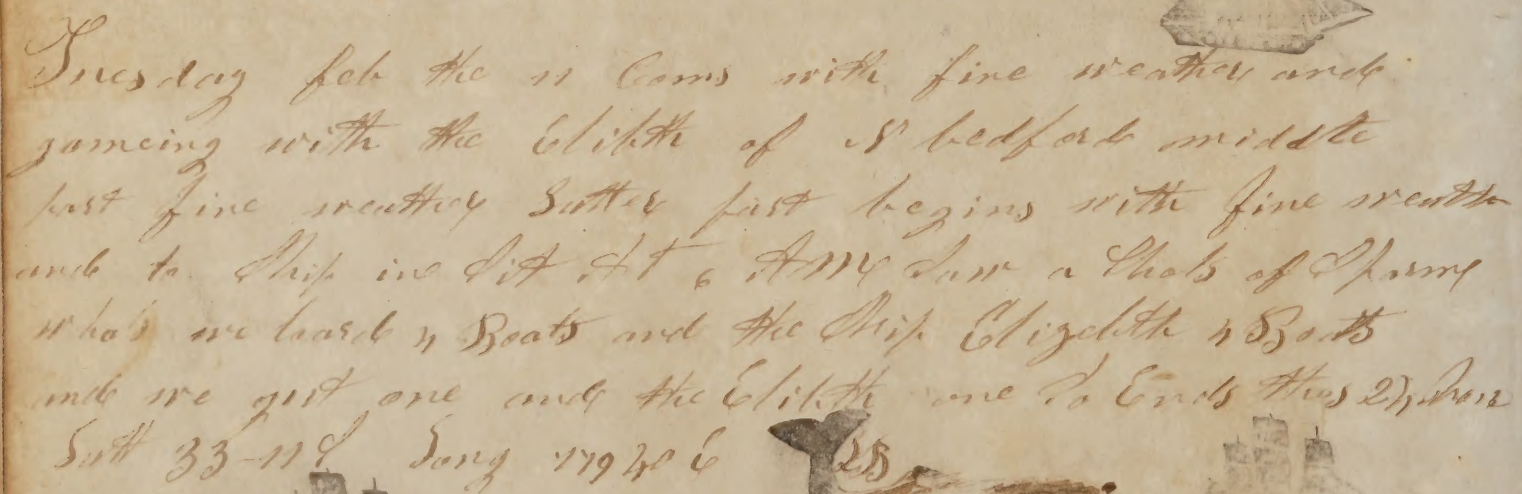 Tuesday feb the 11 Coms with fine weather and
gameing with the Elibth of N bedford middle
part fine weather Latter part begins with fine weath
and to Ship in Sit At 6 AM Saw a Shols of Sparme
whals we loard 4 Boats and the Ship Elizebth 4 Boats
and we got one and the Elibth one So Ends thes 24
Latt 33-11 S Long 179 40 E